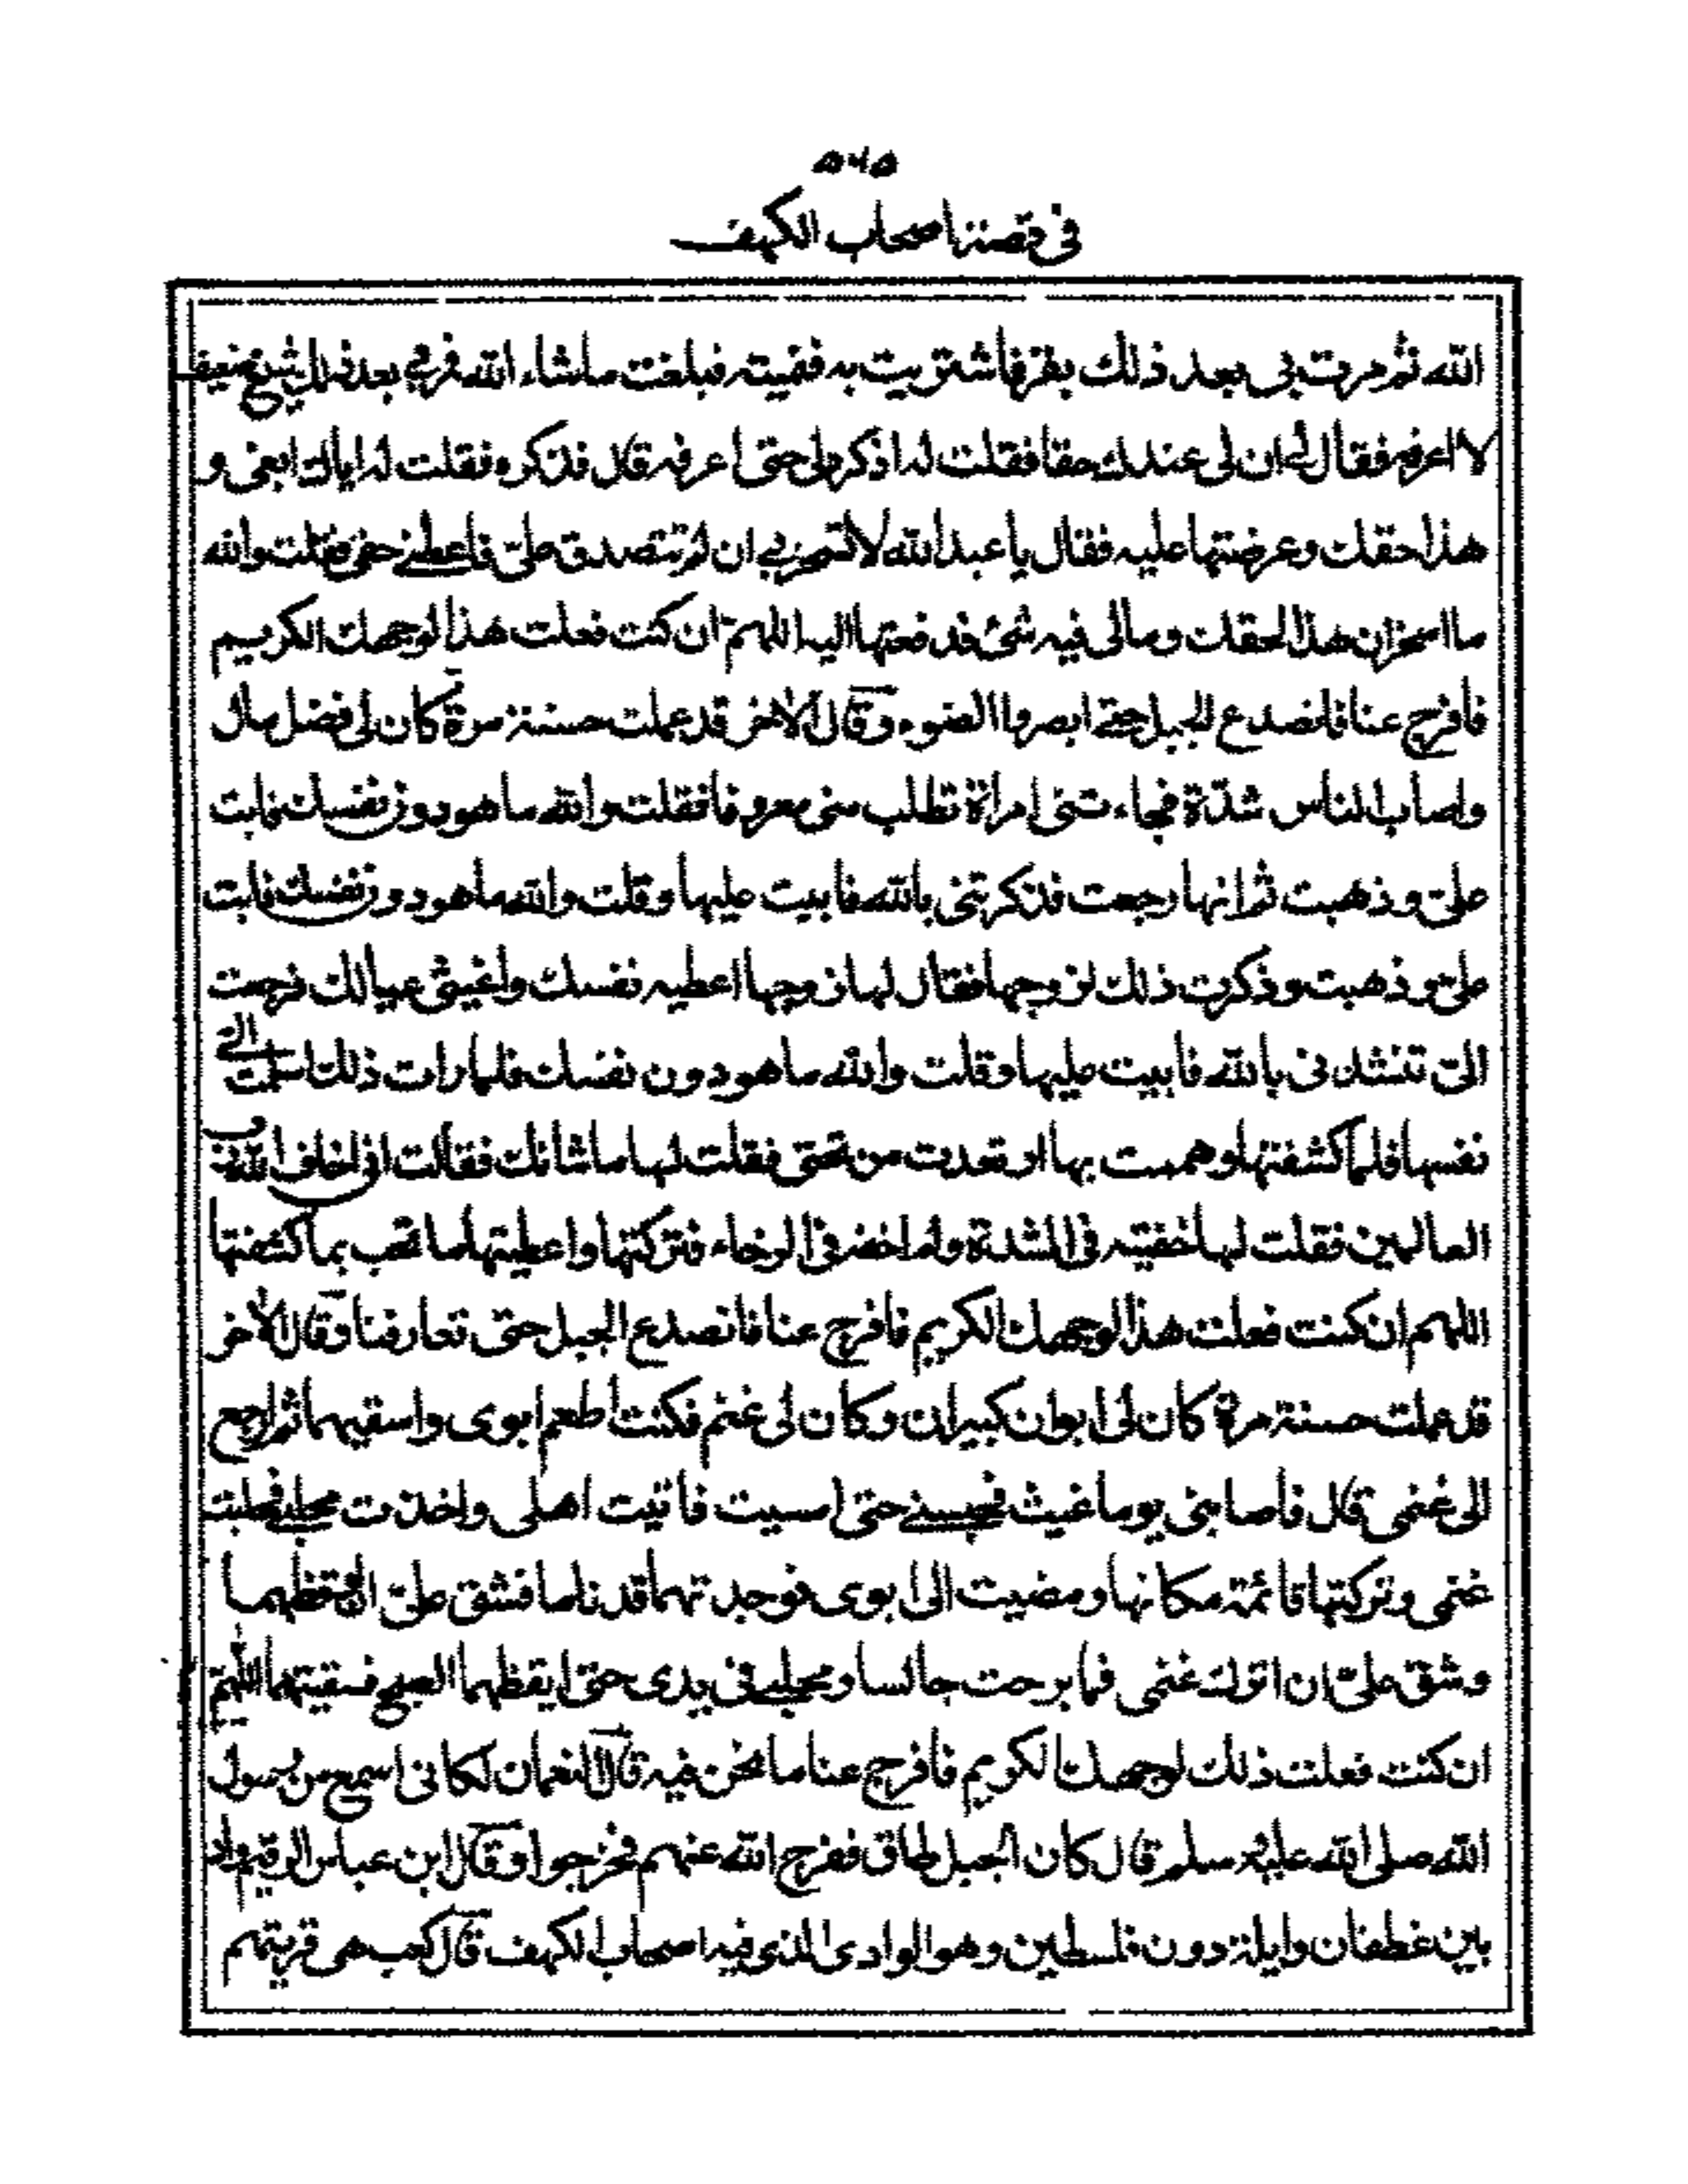 ٥٠١٥
في قصة اصحاب الكهف
الله ثم مرت بي بعد ذلك بقر فاشتريت به ففيته فبلغت ماشاء الله فمر بي بعد ذلك شيخ ضعيف
لا اعرفه فقال لي ان لي عندك حقا فقلت له اذكره لي حتى اعرفه قال فذكره فقلت له اياك ابغي و
هذا حقك وعرضتها عليه فقال يا عبد الله لا تسخر بي ان لم تتصدق علي فاعطني حقي فقلت والله
ما اسخر ان هذا لحقك ومالى فيه شئ فدفعتها اليه اللهم ان كنت فعلت هذا لوجهك الكريم
فافرج عنا فانصدع الجبل حتى ابصروا الضوء وقال الاخر قد عملت حسنة مرة كان لي فضل مال
واصاب الناس شدة فجاءتني امراة تطلب مني معروفا فقلت والله ما هو دون نفسك فابت
علي وذهبت ثم انها رجعت فذكرتني بالله فابيت عليها وقلت والله ما هو دون نفسك فابت
علي وذهبت وذكرت ذلك لزوجها فقال لها زوجها اعطيه نفسك واغيثي عيالك فرجعت
الي تنشدني بالله فابيت عليها وقلت والله ما هو دون نفسك فلما رات ذلك اسلمت الي
نفسها فلما كشفتها وهممت بها ارتعدت من تحتي فقلت لها ما شانك فقالت اني اخاف الله رب
العالمين فقلت لها خفتيه في الشدة ولم اخفه في الرخاء فتركتها واعطيتها ما تحب بما كشفتها
اللهم ان كنت فعلت هذا لوجهك الكريم فافرج عنا فانصدع الجبل حتى تعارفنا وقال الاخر
قد عملت حسنة مرة كان لي ابوان كبيران وكان لي غنم فكنت اطعم ابوى واسقيهما ثم ارجع
الى غنمي قال فاصابني يوما غيث فحبسني حتى امسيت فاتيت اهلي واخذت محلبي فحلبت
غنمي وتركتها قائمة مكانها ومضيت الى ابوى فوجدتهما قد ناما فشق علي ان اوقظهما
وشق علي ان اترك غنمي فما برحت جالسا ومحلبي في يدى حتى ايقظهما الصبح فسقيتهما اللهم
ان كنت فعلت ذلك لوجهك الكريم فافرج عنا ما نحن فيه قال النعمان لكاني اسمع من رسول
الله صلى الله عليه وسلم قال كان الجبل طاق ففرج الله عنهم فخرجوا وقال ابن عباس الرقيم واد
بين غطفان وايلة دون فلسطين وهو الوادى الذي فيه اصحاب الكهف قال كعب هى قريتهم